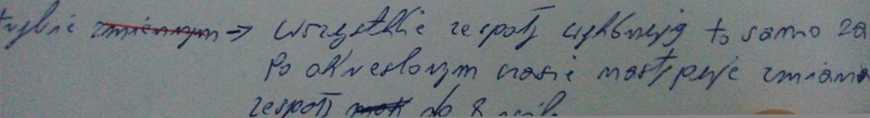 trybie zmiennym → wszystkie zespoły wykonują to samo za
Po określonym czasie następuje zmiana
zespoły do